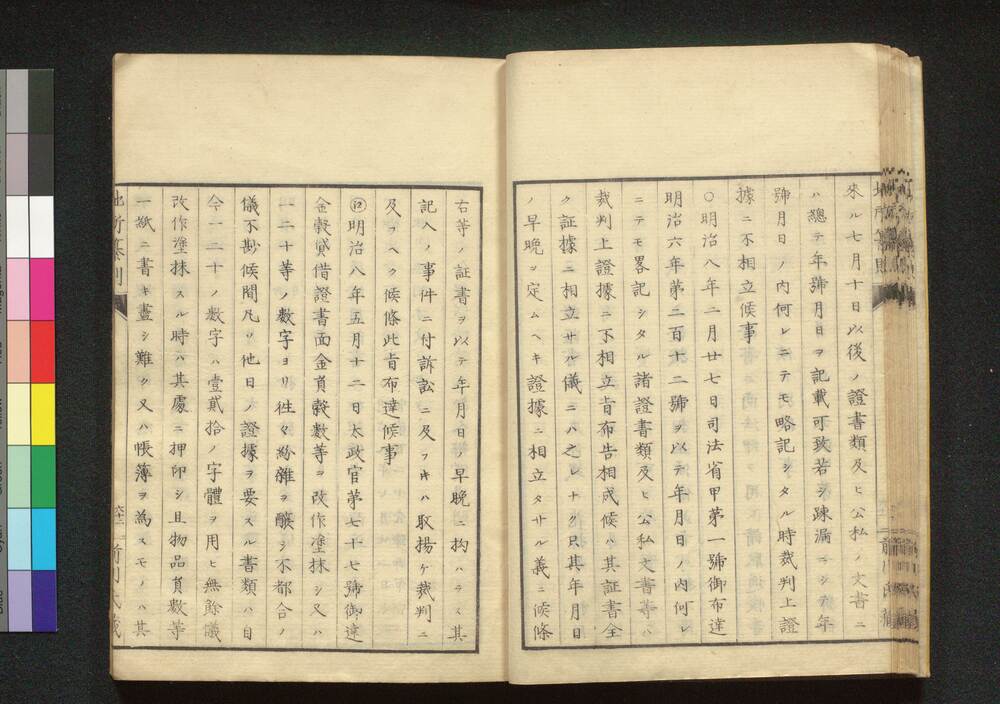 來ル七月十日以後ノ證書類及ヒ公私ノ文書ニ
ハ總テ年號月日ヲ記載可致若シ疎漏ニシテ年
號月日ノ内何レニテモ略記シタル時裁判上證
據ニ不相立候事
〇明治八年二月廿七日司法省甲第一號御布達
明治六年第三百十二號ヲ以テ年月日ノ内何レ
ニテモ畧記シタル諸證書類及ヒ公私文書等ハ
裁判上證據ニ不相立旨布告相成候ハ其証書全
ク証據ニ相立サル儀ニハ之レナク只其年月日
ノ早晩ヲ定ムヘキ證據ニ相立タサル義ニ候條
右等ノ証書ヲ以テ年月日ノ早晩ニ拘ハラス其
記入ノ事件ニ付訴訟ニ及フ片ハ取揚ケ裁判ニ
及フヘク候條此旨布達候事
明治八年五月十二日太政官第七十七號御達
金穀貸借證書面金員穀数等ヲ改作塗抹シ又ハ
一二十等ノ数字ヨリ徃々紛雜ヲ釀シ不都合ノ
儀不尠候間凡ソ他日ノ證據ヲ要スル書類ハ自
今一二十ノ数字ハ壹貳拾ノ字體ヲ用ヒ無餘儀
改作塗抹スル時ハ其處ニ押印シ且物品員数等
一紙ニ書キ盡シ難ク又ハ帳薄ヲ為スモノハ其